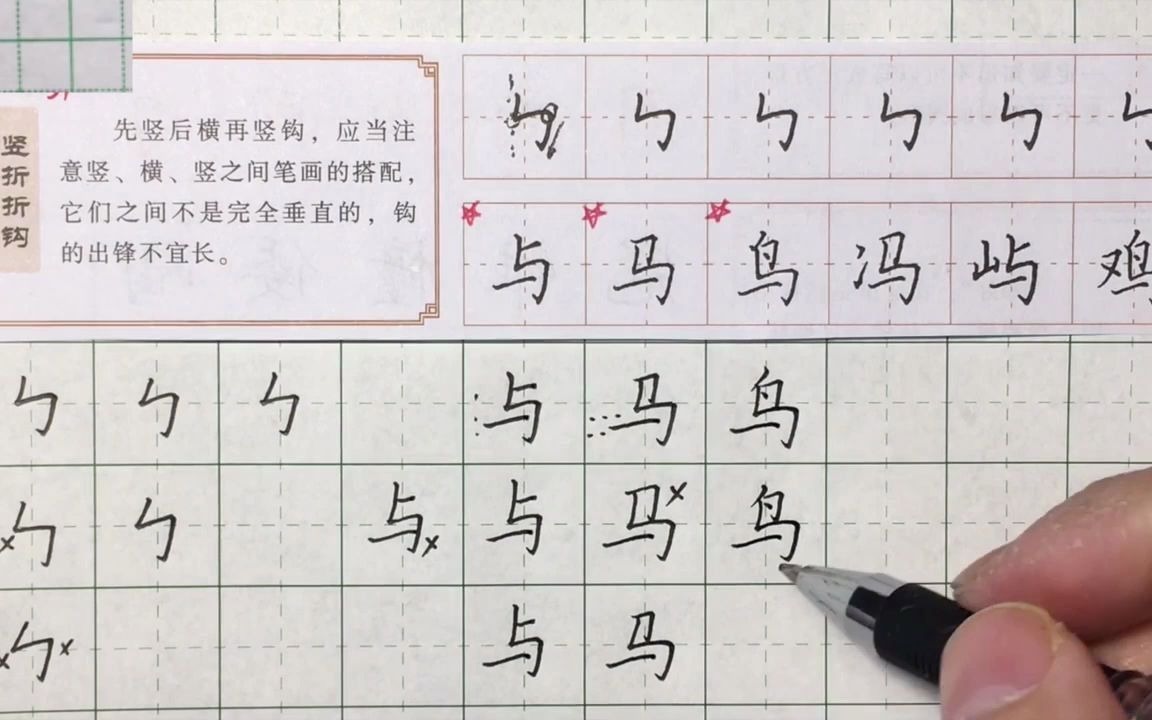 竖折折钩
先竖后横再竖钩，应当注
意竖、横、竖之间笔画的搭配，
它们之间不是完全垂直的，钩
的出锋不宜长。
㇉ ㇉ ㇉ ㇉ ㇉ ㇉
与 马 鸟 冯 屿 鸡
㇉ ㇉ ㇉ 与 马 鸟
×㇉ ㇉ 与× 与 马× 鸟
×㇉× 与 马